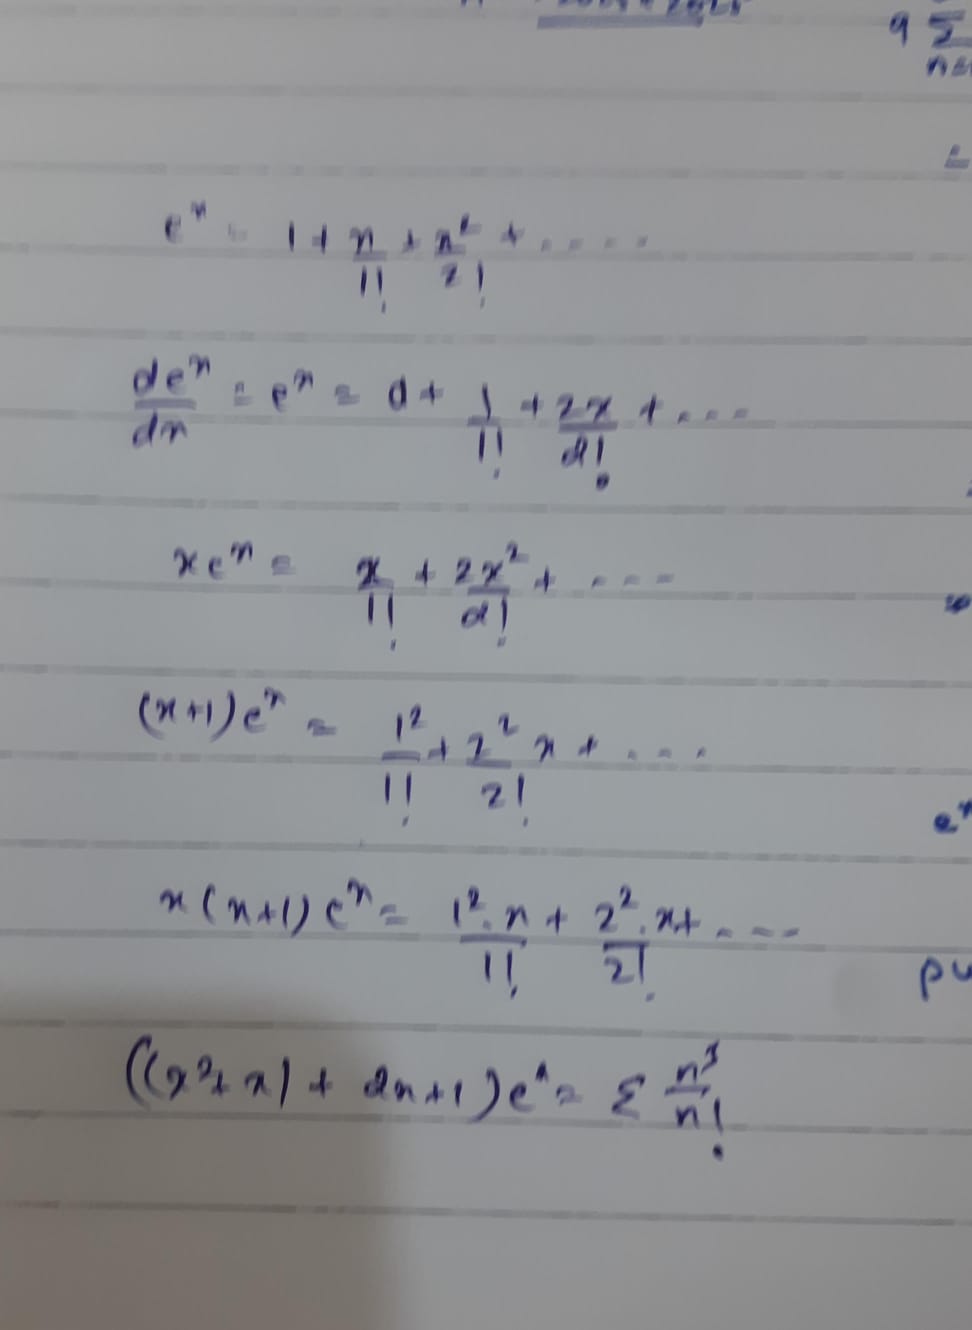 9 Σ
n=
e^x = 1 + x/1! + x²/2! + ....
de^x/dx = e^x = 0 + 1/1! + 2x/2! + ...
xe^x = x/1! + 2x²/2! + ...
(x+1)e^x = 1²/1! + 2²/2! x + ....
x(x+1)e^x = 1².x/1! + 2².x/2! + ...
((x²+x) + 2x+1)e^x = Σ n³/n!